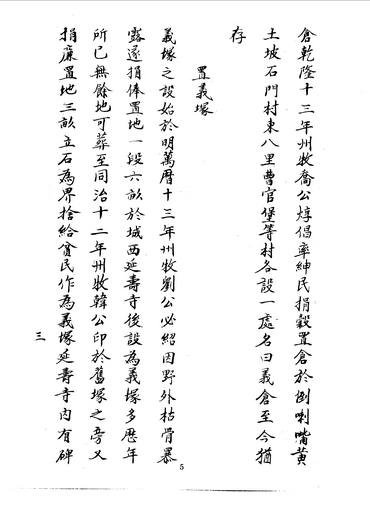 倉乾隆十三年州牧喬公焞倡率紳民捐穀置倉於倒喇嘴黃
土坡石門村東八里曹官堡等村各設一處名曰義倉至今猶
存
置義塚
義塚之設始於明萬曆十三年州牧劉公必紹因野外枯骨暴
露遂捐俸置地一段六畝於城西延壽寺後設為義塚多歷年
所已無餘地可葬至同治十二年州牧韓公印於舊塚之旁又
捐廉置地三畝立石為界捨給貧民作為義塚延壽寺內有碑
三
5